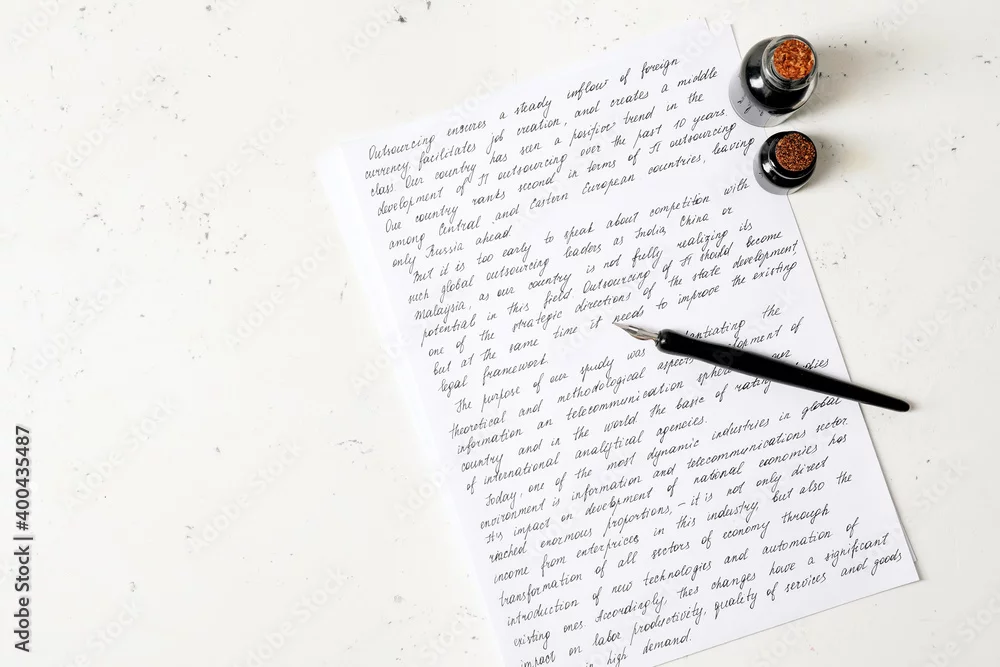 Outsourcing ensures a steady inflow of foreign
currency, facilitates job creation, and creates a middle
class. Our country has seen a positive trend in the
development of IT outsourcing over the past 10 years.
Our country ranks second in terms of IT outsourcing
among Central and Eastern European countries, leaving
only Russia ahead.
But it is too early to speak about competiton with
such global outsourcing leaders as India, China or
Malaysia, as our country is not fully realizing its
potential in this field. Outsourcing of IT should become
one of the strategic directions of the state development,
but at the same time it needs to improve the existing
legal framework.
The purpose of our study was the
theoretical and methodological aspects of
information an telecommunication our
country and in the world the basic of rating
of international analytical agencies.
Today, one of the most dynamic industries in global
environment is information and telecommunications sector.
Its impact on development of national economies has
reached enormous proportions, – it is not only direct
income from enterprices in this industry, but also the
transformation of all sectors of economy through
introduction of new technologies and automation of
existing ones. Accordingly, thes changes have a significant
impact on labor productivity, quality of services and goods
high demand.
Adobe Stock | #400435487